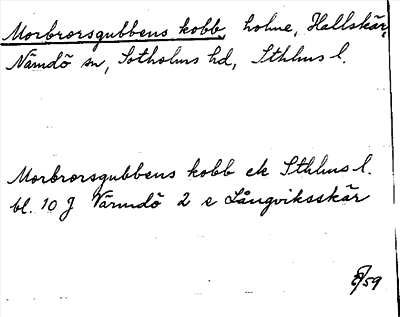 Morbrorsgubbens kobb, holme, Hallskär,
Nämdö sn, Sotholms hd, Sthlms l.
Morbrorsgubbens kobb ek Sthlms l.
bl. 10 J Värmdö 2 e Långviksskär
/59